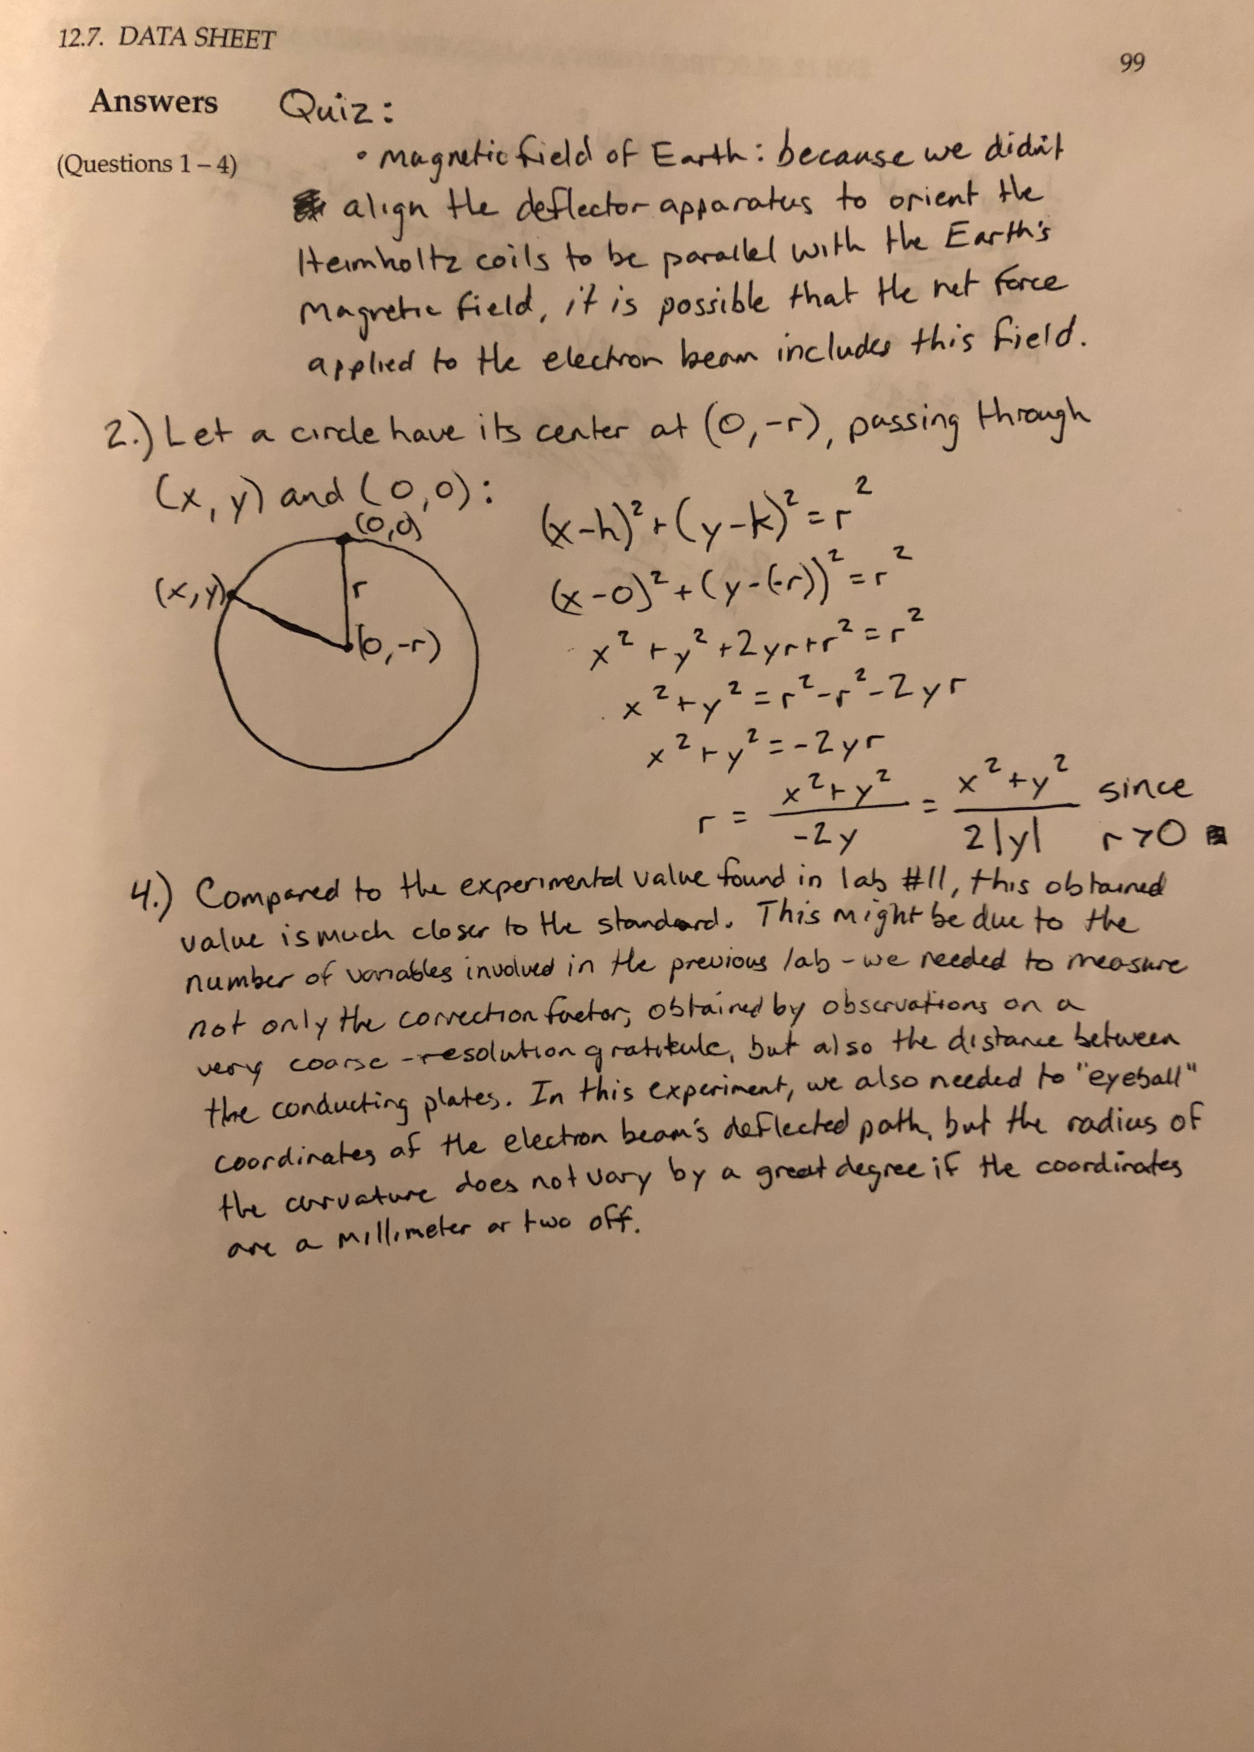 12.7. DATA SHEET
99
Answers Quiz:
(Questions 1 – 4) • Magnetic field of Earth: because we didn't
align the deflector apparatus to orient the
Heimholtz coils to be parallel with the Earth's
Magnetic field, it is possible that the net force
applied to the electron beam includes this field.
2.) Let a circle have its center at (0,-r), passing through
(x, y) and (0,0):
(0,0)
(x-h)²+(y-k)²=r²
(x,y)
r
(x-0)²+(y-(-r))²=r²
(0,-r)
x²+y²+2yr+r²=r²
x²+y²=r²-r²-2yr
x²+y²=-2yr
r = x²+y² / -2y = x²+y² / 2|y| since r>0
4.) Compared to the experimental value found in lab #11, this obtained
value is much closer to the standard. This might be due to the
number of variables involved in the previous lab - we needed to measure
not only the correction factor, obtained by observations on a
very coarse-resolution gratikule, but also the distance between
the conducting plates. In this experiment, we also needed to "eyeball"
coordinates of the electron beam's deflected path, but the radius of
the curvature does not vary by a great degree if the coordinates
are a millimeter or two off.